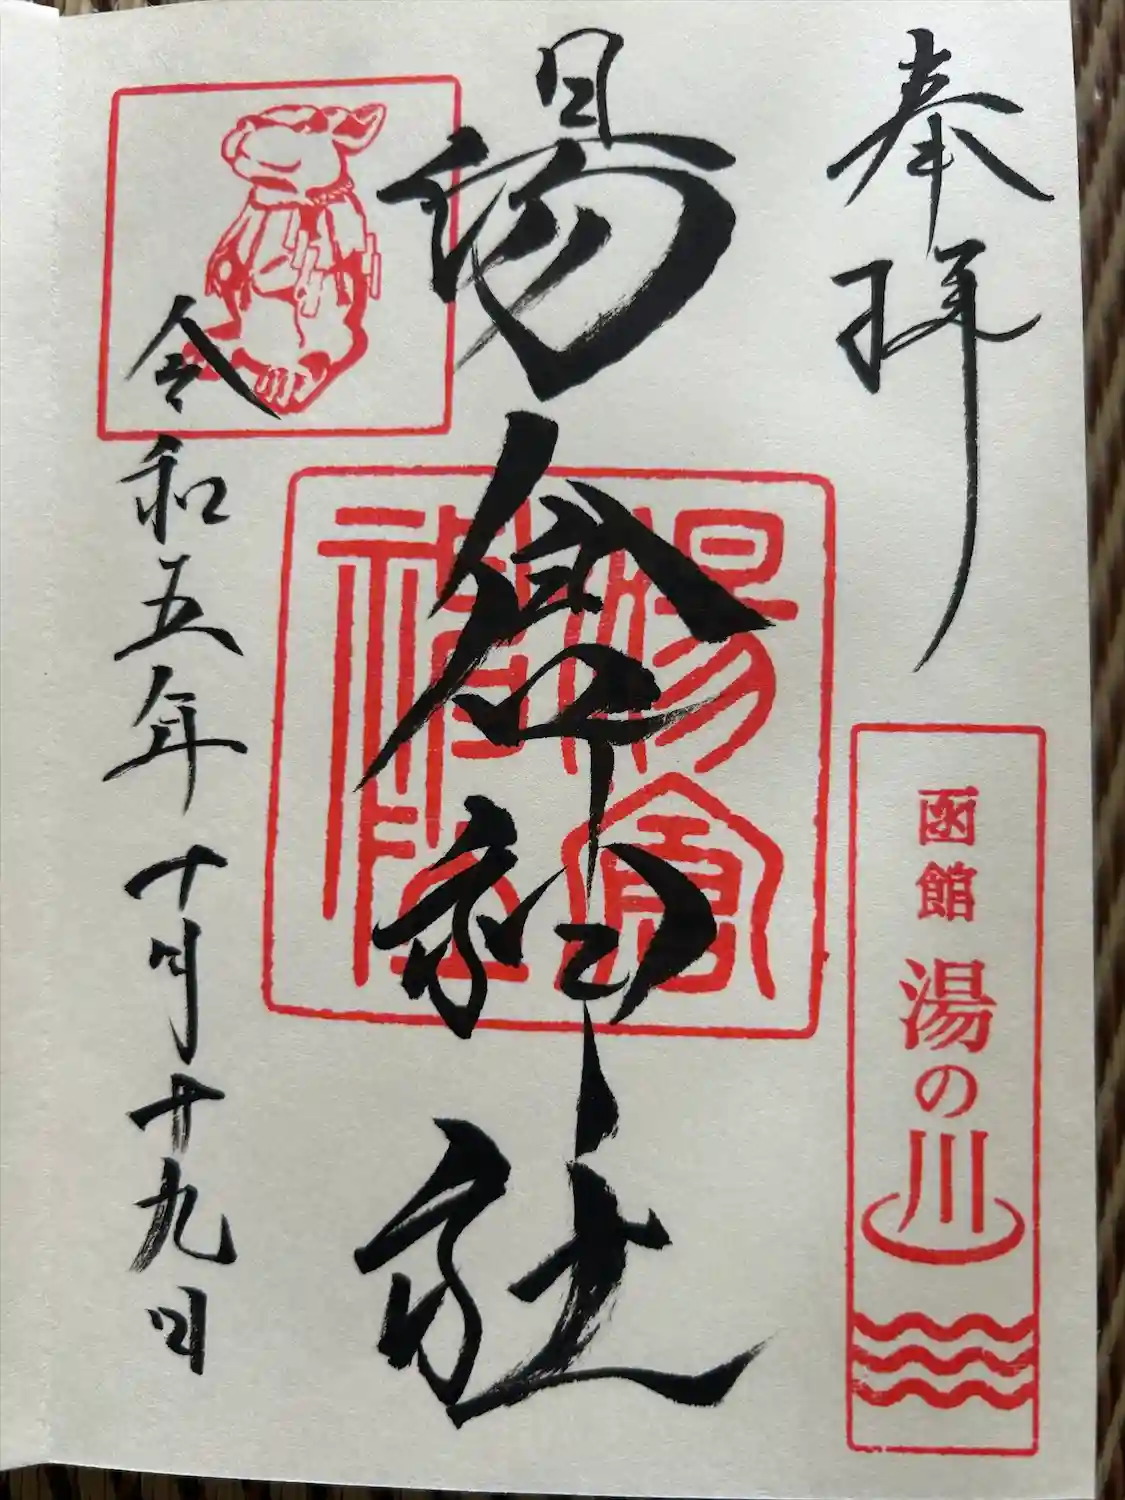 奉拝
函館 湯の川
湯倉神社
湯倉神社
令和五年十月十九日